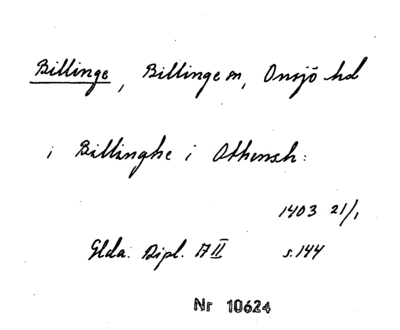 Billinge, Billinge sn, Onsjö hd
i Billinghe i Othensh:
1403 21/1
Glda. Dipl. A II s. 144
Nr 10624